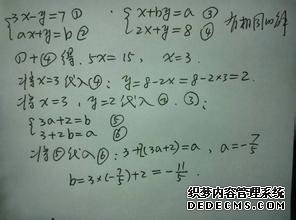 {3x-y=7 ① {x+by=a ③ 有相同的解
ax+y=b ② 2x+y=8 ④
①+④得, 5x=15, x=3.
将x=3代入④: y=8-2x=8-2×3=2.
将x=3, y=2代入②、③:
{3a+2=b ⑤
3+2b=a ⑥
将⑤代入⑥: 3+2(3a+2)=a, a=-7/5
b=3×(-7/5)+2=-11/5.
织梦内容管理系统
DEDECMS.COM